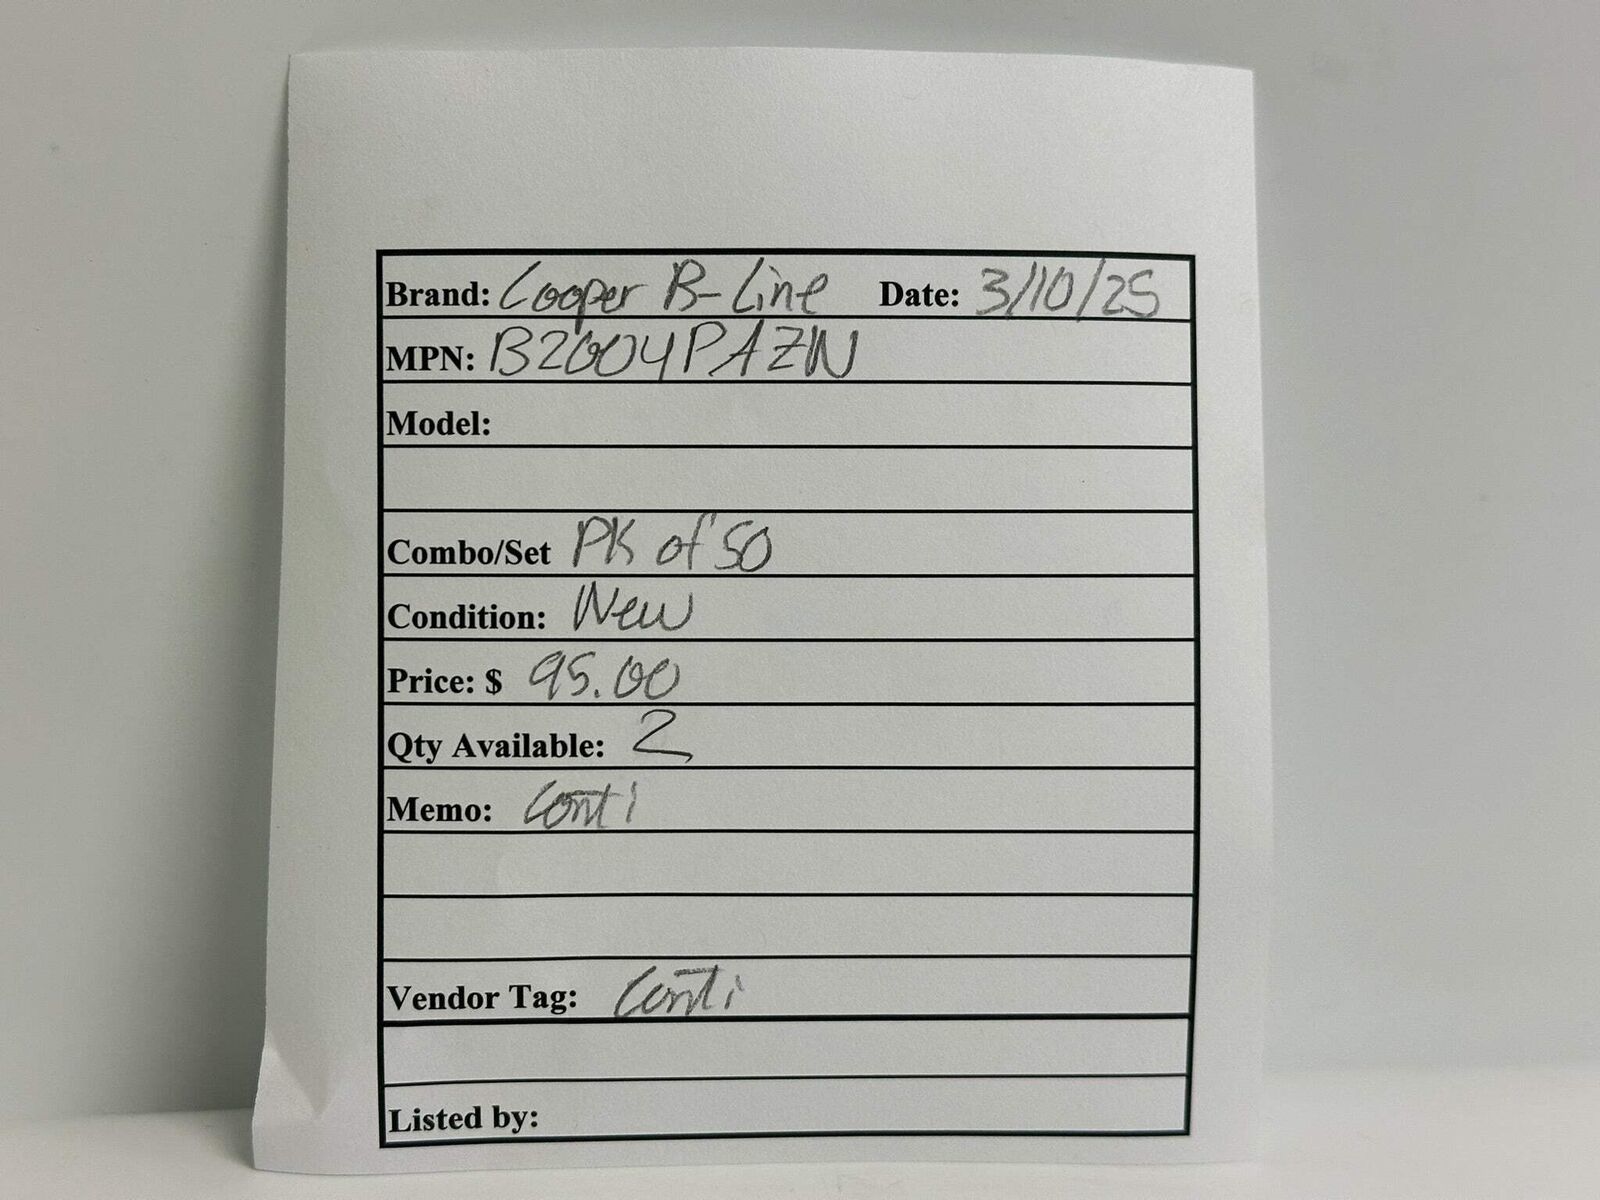 Brand: Cooper B-Line Date: 3/10/25
MPN: B2004PAZN
Model:
Combo/Set PK of 50
Condition: New
Price: $ 95.00
Qty Available: 2
Memo: Conti
Vendor Tag: Conti
Listed by: